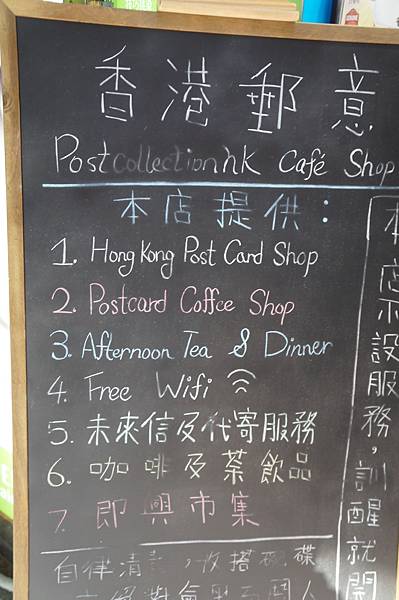 香港郵意
Postcollectionhk Café Shop
本店提供：
1. Hong Kong Post Card Shop
2. Postcard Coffee Shop
3. Afternoon Tea & Dinner
4. Free Wifi
5. 未來信及代寄服務
6. 咖啡及茶飲品
7. 即興市集
自律清
碟
本店不設服務，訓醒就開